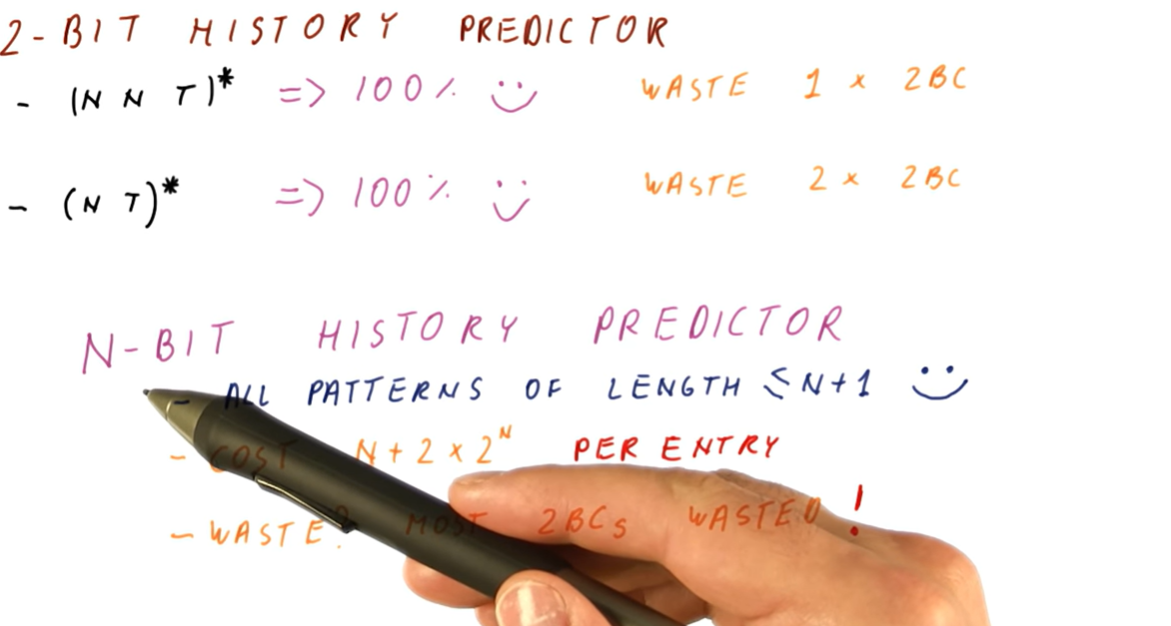 2-BIT HISTORY PREDICTOR
- (N N T)* => 100% WASTE 1 x 2BC
- (N T)* => 100% WASTE 2 x 2BC
N-BIT HISTORY PREDICTOR
- ALL PATTERNS OF LENGTH ≤ N+1
- COST N + 2 x 2^N PER ENTRY
- WASTE? MOST 2BCs WASTED!